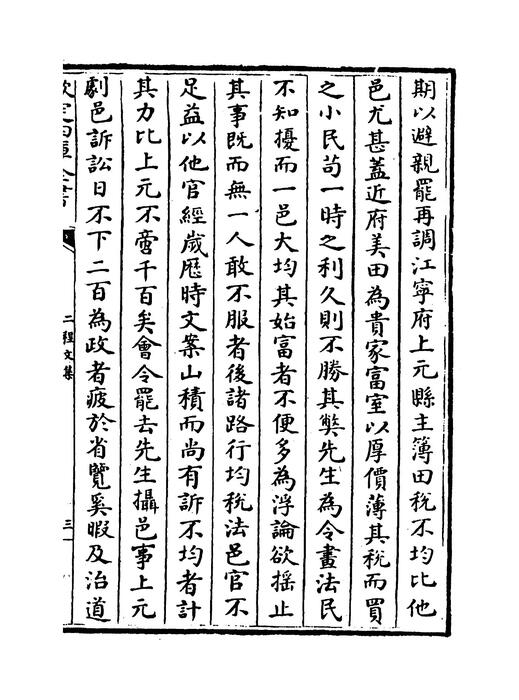 期以避親罷再調江寧府上元縣主簿田税不均比他
邑尤甚蓋近府美田為貴家富室以厚價薄其税而買
之小民苟一時之利久則不勝其弊先生為令畫法民
不知擾而一邑大均其始富者不便多為浮論欲揺止
其事既而無一人敢不服者後諸路行均税法邑官不
足益以他官經歳厯時文案山積而尚有訴不均者計
其力比上元不啻千百矣會令罷去先生攝邑事上元
劇邑訴訟日不下二百為政者疲於省覽奚暇及治道
欽定四庫全書
二程文集
三